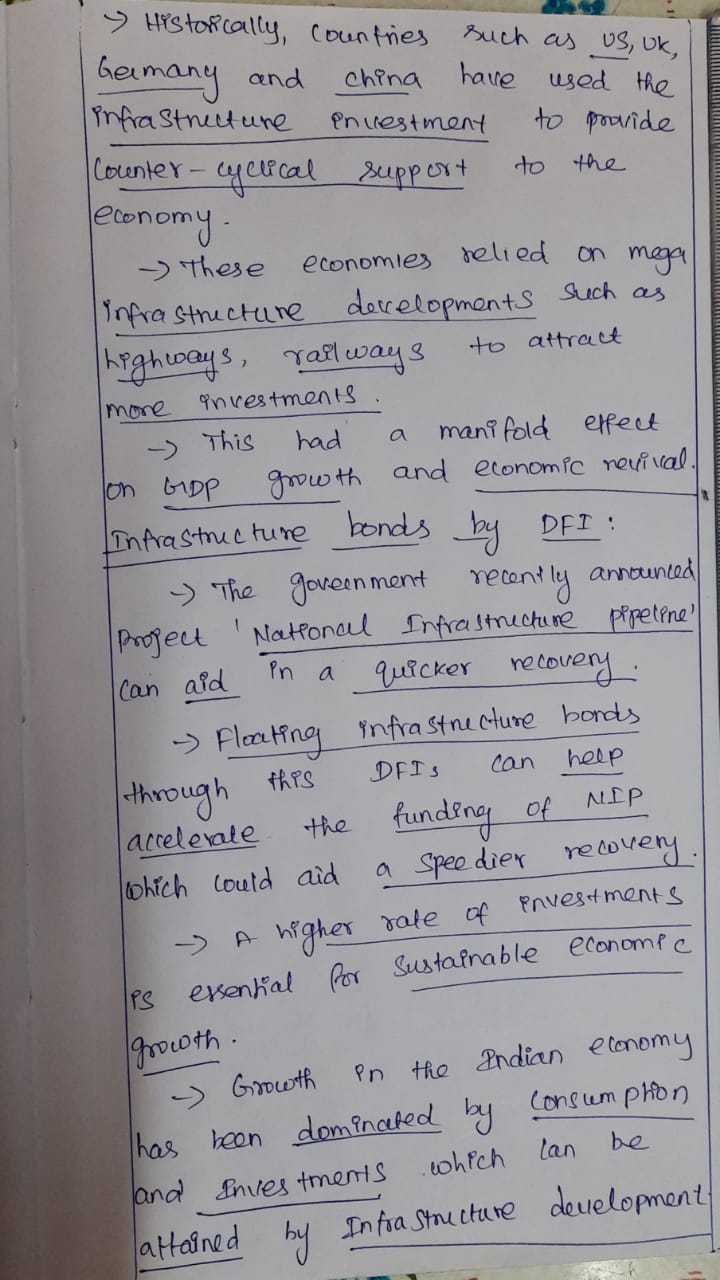 → Historically, Countries such as US, UK,
Germany and china have used the
infrastructure investment to provide
Counter-cyclical support to the
economy.
→ These economies relied on mega
infrastructure developments such as
highways, railways to attract
more investments.
→ This had a manifold effect
on GDP growth and economic revival.
Infrastructure bonds by DFI:
→ The government recently announced
Project 'National Infrastructure pipeline'
can aid in a quicker recovery.
→ Floating infrastructure bonds
through this DFIs can help
accelerate the funding of NIP
which could aid a speedier recovery.
→ A higher rate of investments
is essential for sustainable economic
growth.
→ Growth in the Indian economy
has been dominated by consumption
and Investments which can be
attained by Infrastructure development